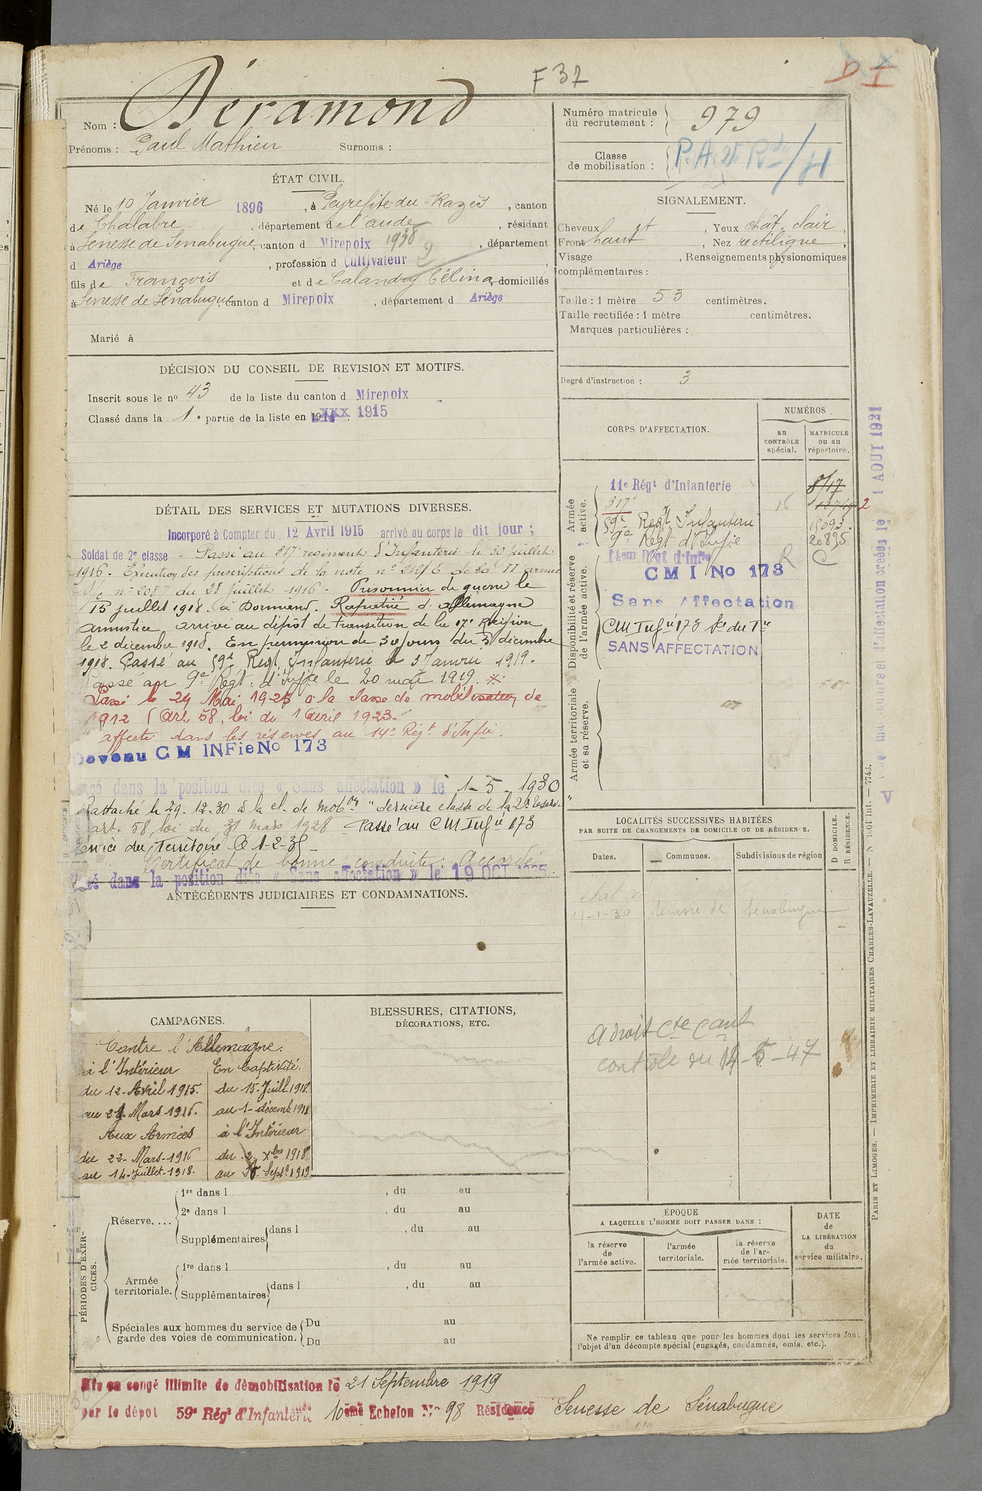 F 37
Nom : Déramond
Prénoms : Paul Mathieu Surnoms :
ÉTAT CIVIL.
Né le 10 Janvier 1896, à Peyrefitte du Razès, canton
de Chalabre, département de l'aude, résidant
à Senesse de Senabugue, canton d Mirepoix 1938, département
d Ariège, profession d Cultivateur
fils de François et de Calanday Célina, domiciliés
à Senesse de Senabugue canton d Mirepoix, département d Ariège
Marié à
DÉCISION DU CONSEIL DE REVISION ET MOTIFS.
Inscrit sous le no 43 de la liste du canton d Mirepoix
Classé dans la 1e partie de la liste en 1915
DÉTAIL DES SERVICES ET MUTATIONS DIVERSES.
Incorporé à Compter du 12 Avril 1915 arrivé au corps le dit jour ;
Soldat de 2e classe - Passé au 317 régiment d'Infanterie le 30 juillet
1916. Exécution des prescriptions de la note
du 28 juillet 1916. Prisonnier de guerre le
15 juillet 1918 à Dormans. Rapatrié d'allemagne
armistice arrivé au dépôt de transition de la 17e Région
le 2 décembre 1918. En permission de 30 jours du 3 décembre
1918. Passé au 59e Régt Infanterie le 3 Janvier 1919.
Passé au 9e Régt d'Inftie le 20 mars 1919.
Passé le 29 Mai 1925 à la classe de mobilisation de
1912 (art. 58, loi du 1 avril 1923.
affecté dans les réserves au 14e Régt d'Infie.
Devenu C M INFie No 173
Passé dans la position dite « Sans affectation » le 1-5-1930
Rattaché le 29-12-30 à la cl. de mobon "dernière classe de la 2e réserve
art. 58, loi du 31 mars 1928 Passé au CM Infie 173
Service du Territoire le 1-2-35
Certificat de bonne conduite : Accordé
Passé dans la position dite « Sans affectation » le 19 OCT 1935
ANTÉCÉDENTS JUDICIAIRES ET CONDAMNATIONS.
CAMPAGNES.
Contre l'Allemagne.
à l'Intérieur
du 12-Avril 1915.
au 21 Mars 1916.
Aux Armées
du 22-Mars-1916
au 14-Juillet-1918.
En Captivité.
du 15-Juill. 1918
au 1-décemb. 1918
à l'Intérieur
du 2 Xbre 1918
au Septe 1919
BLESSURES, CITATIONS,
DÉCORATIONS, ETC.
PÉRIODES D'EXERCICES.
Réserve....
1re dans l , du au
2e dans l , du au
Supplémentaires dans l , du au
Armée territoriale.
1re dans l , du au
Supplémentaires dans l , du au
Spéciales aux hommes du service de garde des voies de communication.
Du au
Du au
Mis en congé illimité de démobilisation le 21 Septembre 1919
par le dépôt 59e Régt d'Infanterie 10ème Echelon No 98 Résidence Senesse de Sénabugue
Numéro matricule
du recrutement : 979
Classe
de mobilisation :
SIGNALEMENT.
Cheveux ct, Yeux chât. clair
Front haut, Nez rectiligne
Visage , Renseignements physionomiques
complémentaires :
Taille : 1 mètre 53 centimètres.
Taille rectifiée : 1 mètre centimètres.
Marques particulières :
Degré d'instruction : 3
CORPS D'AFFECTATION.
NUMÉROS
au
CONTRÔLE
spécial.
MATRICULE
ou au
répertoire.
Armée active.
11e Régt d'Infanterie
317e
59e Regt Infanterie
9e Régt d'Infie
16
15093.
20895
Disponibilité et réserve de l'armée active.
14em Régt d'Infie R C
C M I No 173
Sans Affectation
CM Infie 173 Sce du Tre
SANS AFFECTATION
Armée territoriale et sa réserve.
1 AOUT 1921
LOCALITÉS SUCCESSIVES HABITÉES
PAR SUITE DE CHANGEMENTS DE DOMICILE OU DE RÉSIDENCE.
Dates.
Communes.
Subdivisions de région
D DOMICILE.
R RÉSIDENCE.
Senesse de Senabugue
a droit Cte Cant
contrôle du 14-5-47
ÉPOQUE
A LAQUELLE L'HOMME DOIT PASSER DANS :
la réserve
de
l'armée active.
l'armée
territoriale.
la réserve
de l'armée territoriale.
DATE
de
LA LIBÉRATION
du
service militaire.
Ne remplir ce tableau que pour les hommes dont les services font
l'objet d'un décompte spécial (engagés, condamnés, omis, etc.).
PARIS ET LIMOGES. — IMPRIMERIE ET LIBRAIRIE MILITAIRES CHARLES-LAVAUZELLE.